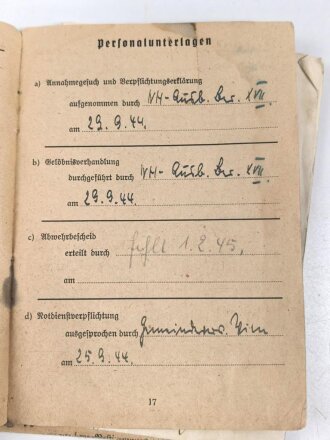 Personalunterlagen
a) Annahmegesuch und Verpflichtungserklärung
aufgenommen durch NH-Ausb. Ber. XVII
am 29.9.44.
b) Gelöbnisverhandlung
durchgeführt durch NH-Ausb. Ber. XVII
am 29.9.44.
c) Abwehrbescheid
erteilt durch fehlt 1.2.45,
am
d) Notdienstverpflichtung
ausgesprochen durch
am 25.9.44.
17